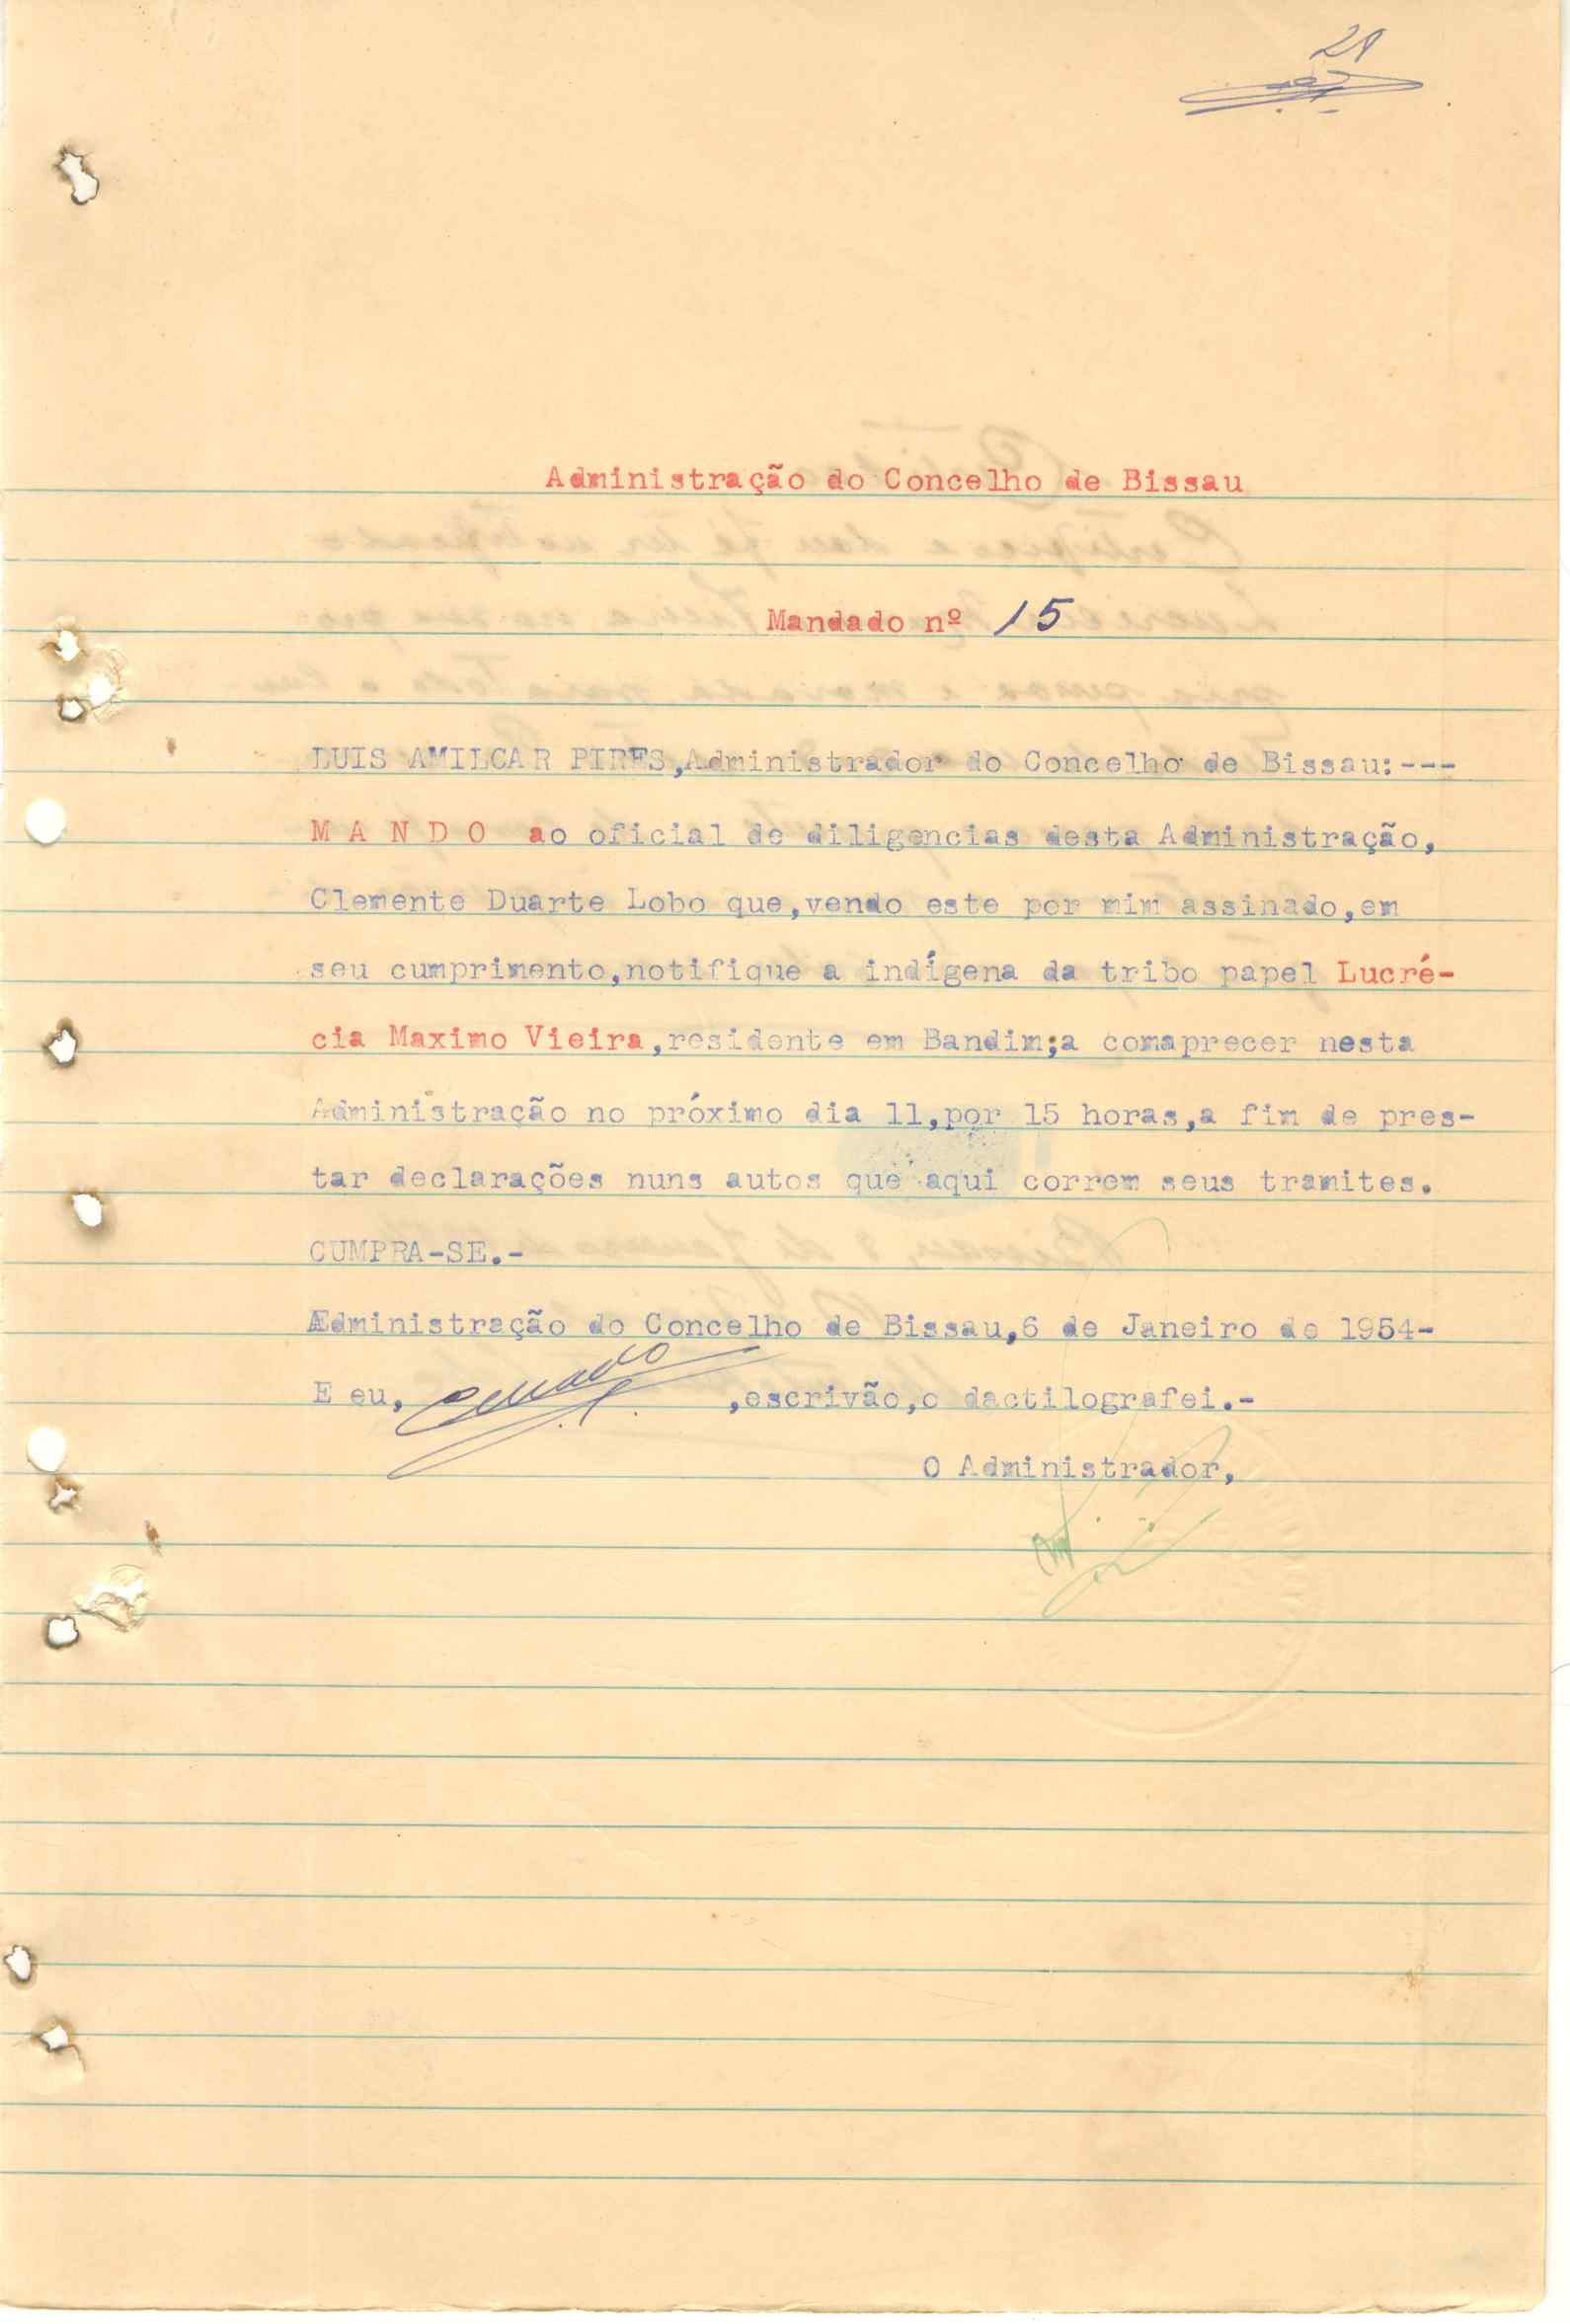 21
Administração do Concelho de Bissau
Mandado nº 15
LUIS AMILCAR PIRES,Administrador do Concelho de Bissau:---
M A N D O ao oficial de diligencias desta Administração,
Clemente Duarte Lobo que,vendo este por mim assinado,em
seu cumprimento,notifique a indígena da tribo papel Lucré-
cia Maximo Vieira,residente em Bandim;a comaprecer nesta
Administração no próximo dia 11,por 15 horas,a fim de pres-
tar declarações nuns autos que aqui correm seus tramites.
CUMPRA-SE.-
Administração do Concelho de Bissau,6 de Janeiro de 1954-
E eu, ,escrivão,o dactilografei.-
O Administrador,